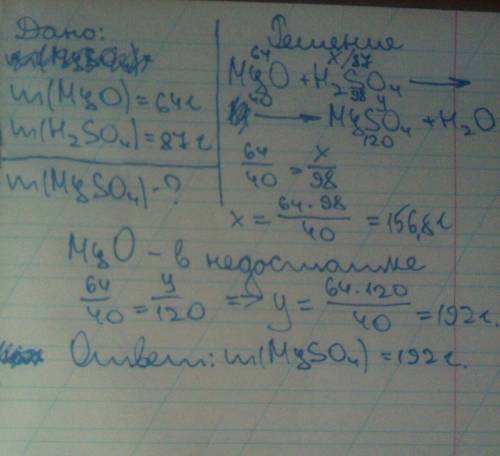 Дано:
m(MgO)=64г
m(H₂SO₄)=87г
m(MgSO₄)-?
Решение
64 x/87
MgO + H₂SO₄ ⟶
40 98 y
⟶ MgSO₄ + H₂O
120
64/40 = x/98
x = 64·98/40 = 156,8г
MgO - в недостатке
64/40 = y/120 => y = 64·120/40 = 192г.
Ответ: m(MgSO₄) = 192г.